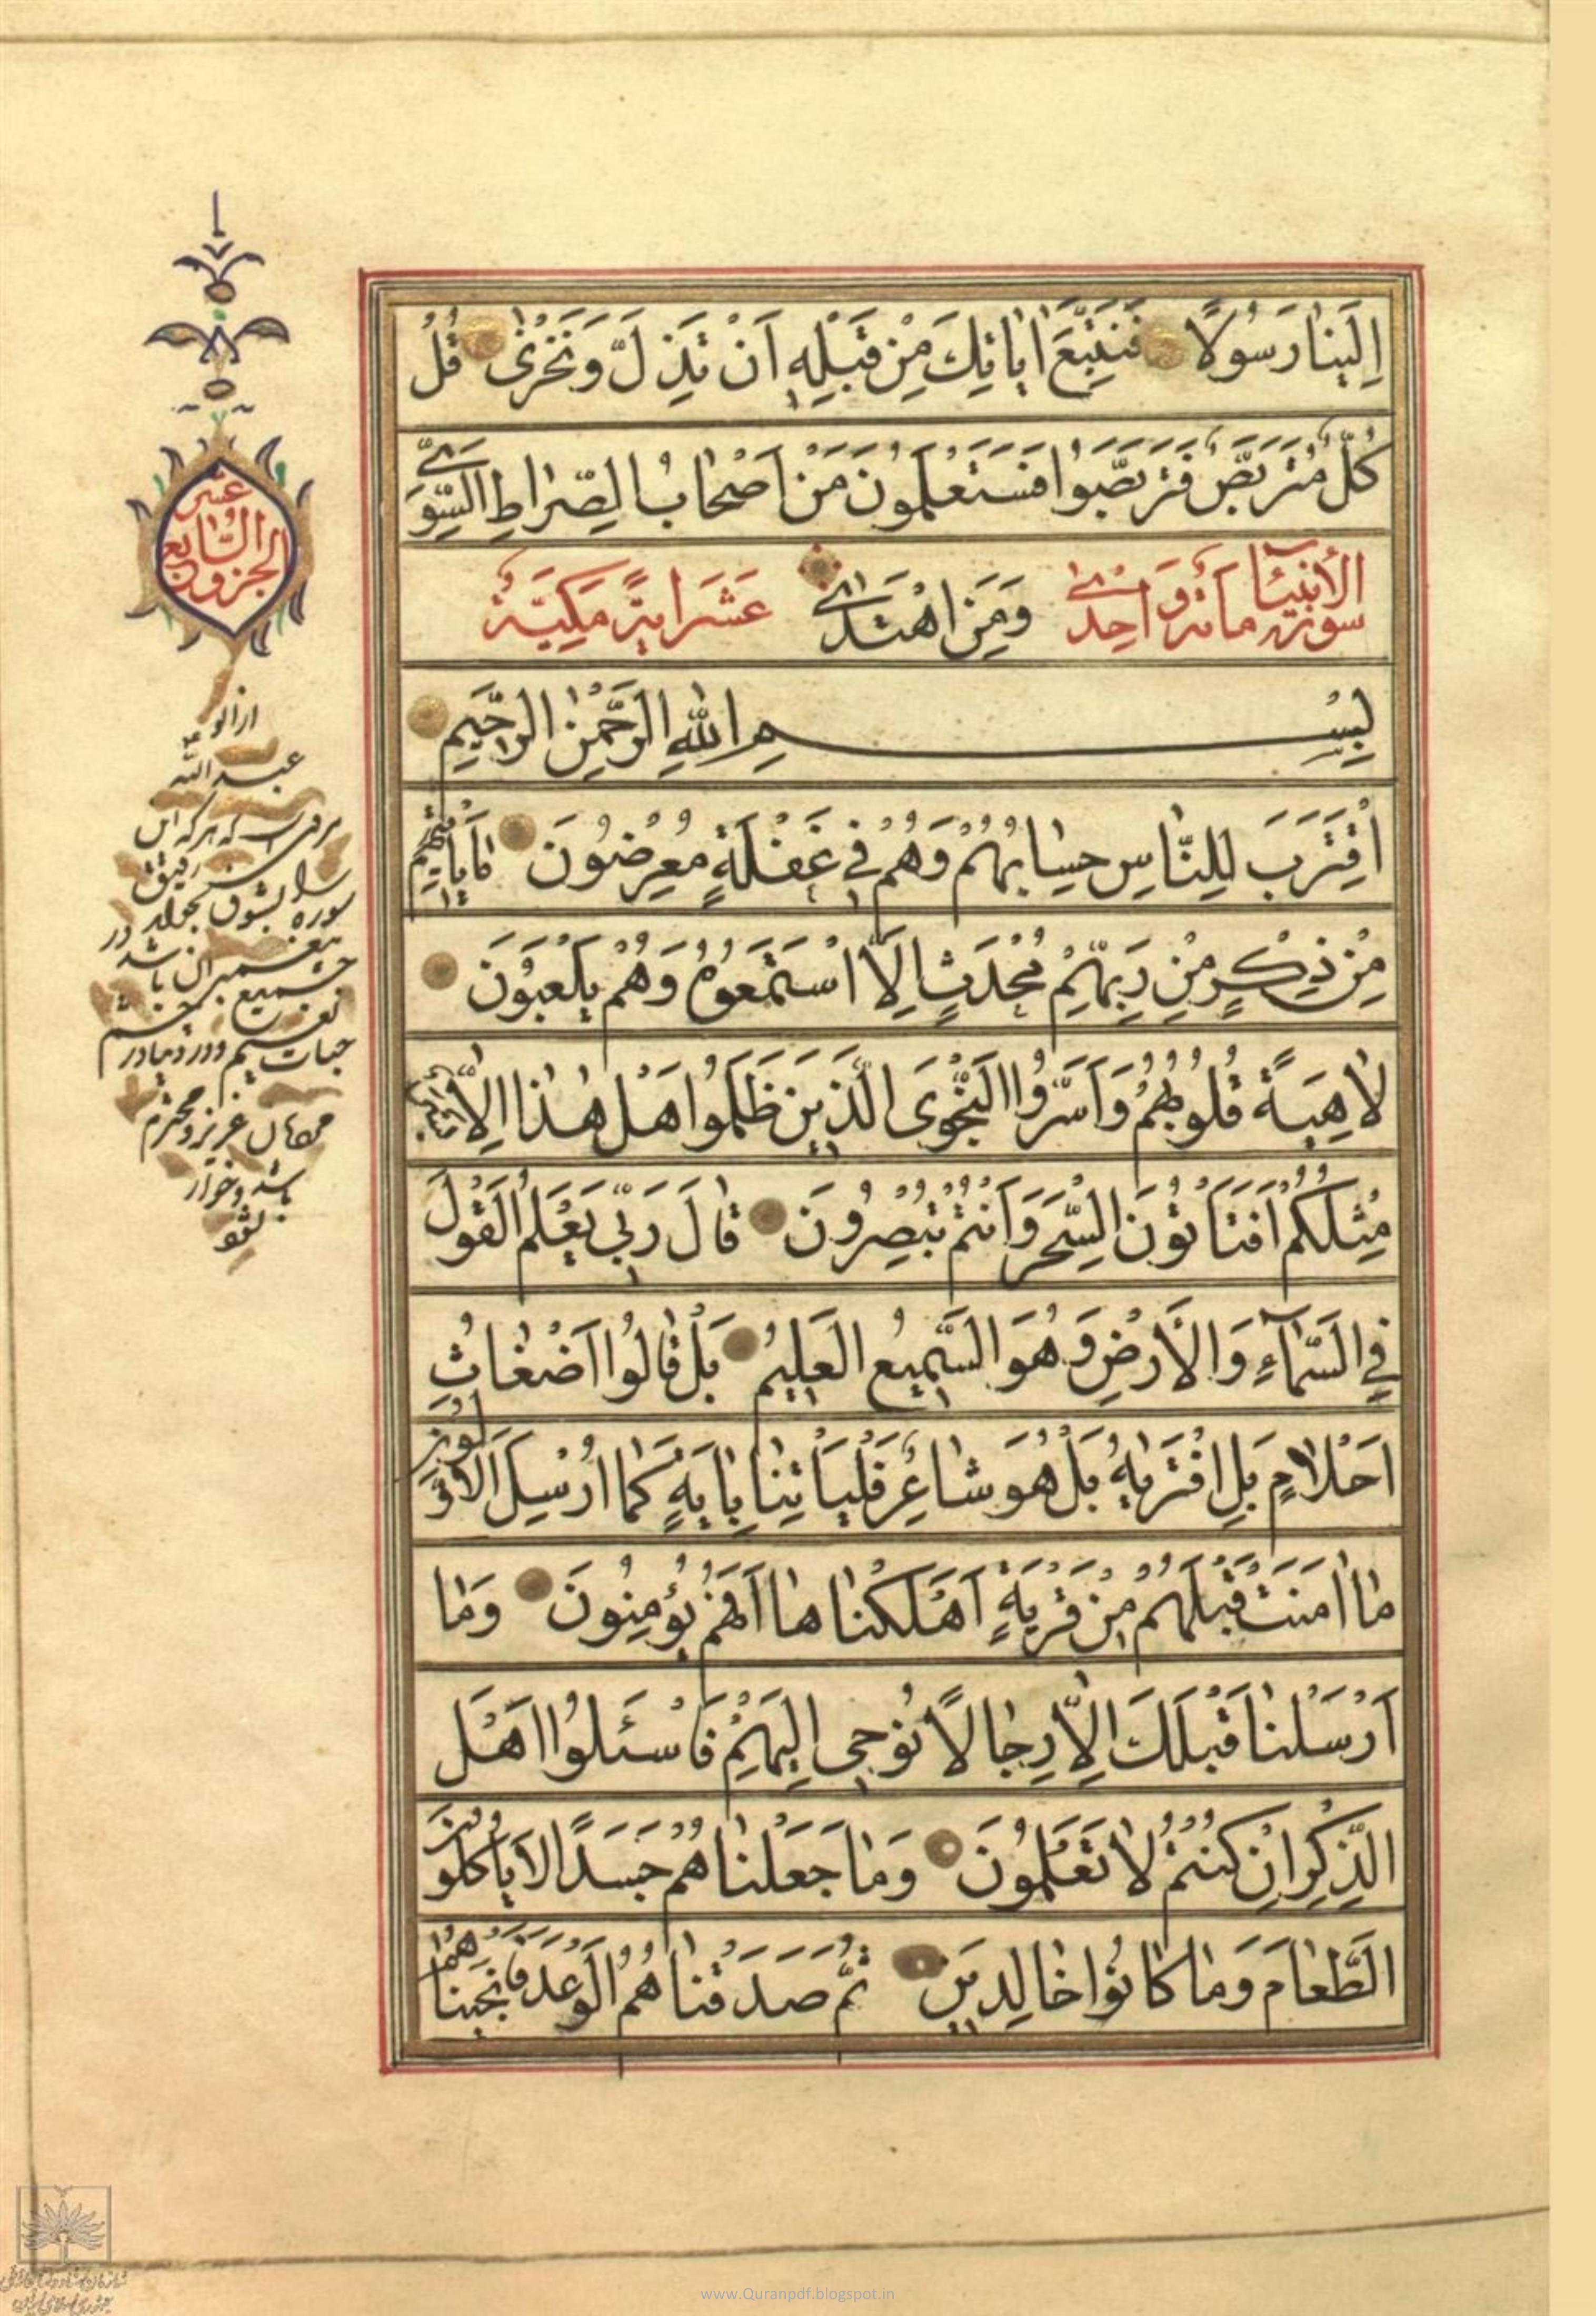 اِلَيْنٰا رَسُولًا فَنَتَّبِعَ اٰيٰاتِكَ مِنْ قَبْلِ اَنْ نَذِلَّ وَنَخْزٰى قُلْ
كُلٌّ مُتَرَبِّصٌ فَتَرَبَّصُوا فَسَتَعْلَمُونَ مَنْ اَصْحٰابُ الصِّرٰاطِ السَّوِىِّ
سورة الأنبياء مائة واحدى وَمَنِ اهْتَدٰى عشر اية مكية
بِسْمِ اللّٰهِ الرَّحْمٰنِ الرَّحِيمِ
اِقْتَرَبَ لِلنّٰاسِ حِسٰابُهُمْ وَهُمْ فِى غَفْلَةٍ مُعْرِضُونَ مٰا يَاْتِيهِمْ
مِنْ ذِكْرٍ مِنْ رَبِّهِمْ مُحْدَثٍ اِلَّا اسْتَمَعُوهُ وَهُمْ يَلْعَبُونَ
لٰاهِيَةً قُلُوبُهُمْ وَاَسَرُّوا النَّجْوَى الَّذِينَ ظَلَمُوا هَلْ هٰذٰا اِلّٰا بَشَرٌ
مِثْلُكُمْ اَفَتَاْتُونَ السِّحْرَ وَاَنْتُمْ تُبْصِرُونَ قٰالَ رَبِّى يَعْلَمُ الْقَوْلَ
فِى السَّمٰآءِ وَالْاَرْضِ وَهُوَ السَّمِيعُ الْعَلِيمُ بَلْ قٰالُوا اَضْغٰاثُ
اَحْلٰامٍ بَلِ افْتَرٰيهُ بَلْ هُوَ شٰاعِرٌ فَلْيَاْتِنٰا بِاٰيَةٍ كَمٰا اُرْسِلَ الْاَوَّلُونَ
مٰا اٰمَنَتْ قَبْلَهُمْ مِنْ قَرْيَةٍ اَهْلَكْنٰاهٰا اَفَهُمْ يُؤْمِنُونَ وَمٰا
اَرْسَلْنٰا قَبْلَكَ اِلّٰا رِجٰالًا نُوحِى اِلَيْهِمْ فَاسْئَلُوا اَهْلَ
الذِّكْرِ اِنْ كُنْتُمْ لٰا تَعْلَمُونَ وَمٰا جَعَلْنٰاهُمْ جَسَدًا لٰا يَاْكُلُونَ
الطَّعٰامَ وَمٰا كٰانُوا خٰالِدِينَ ثُمَّ صَدَقْنٰاهُمُ الْوَعْدَ فَاَنْجَيْنٰاهُمْ
الجزو
السابع
عشر
عبد الله
www.Quranpdf.blogspot.in